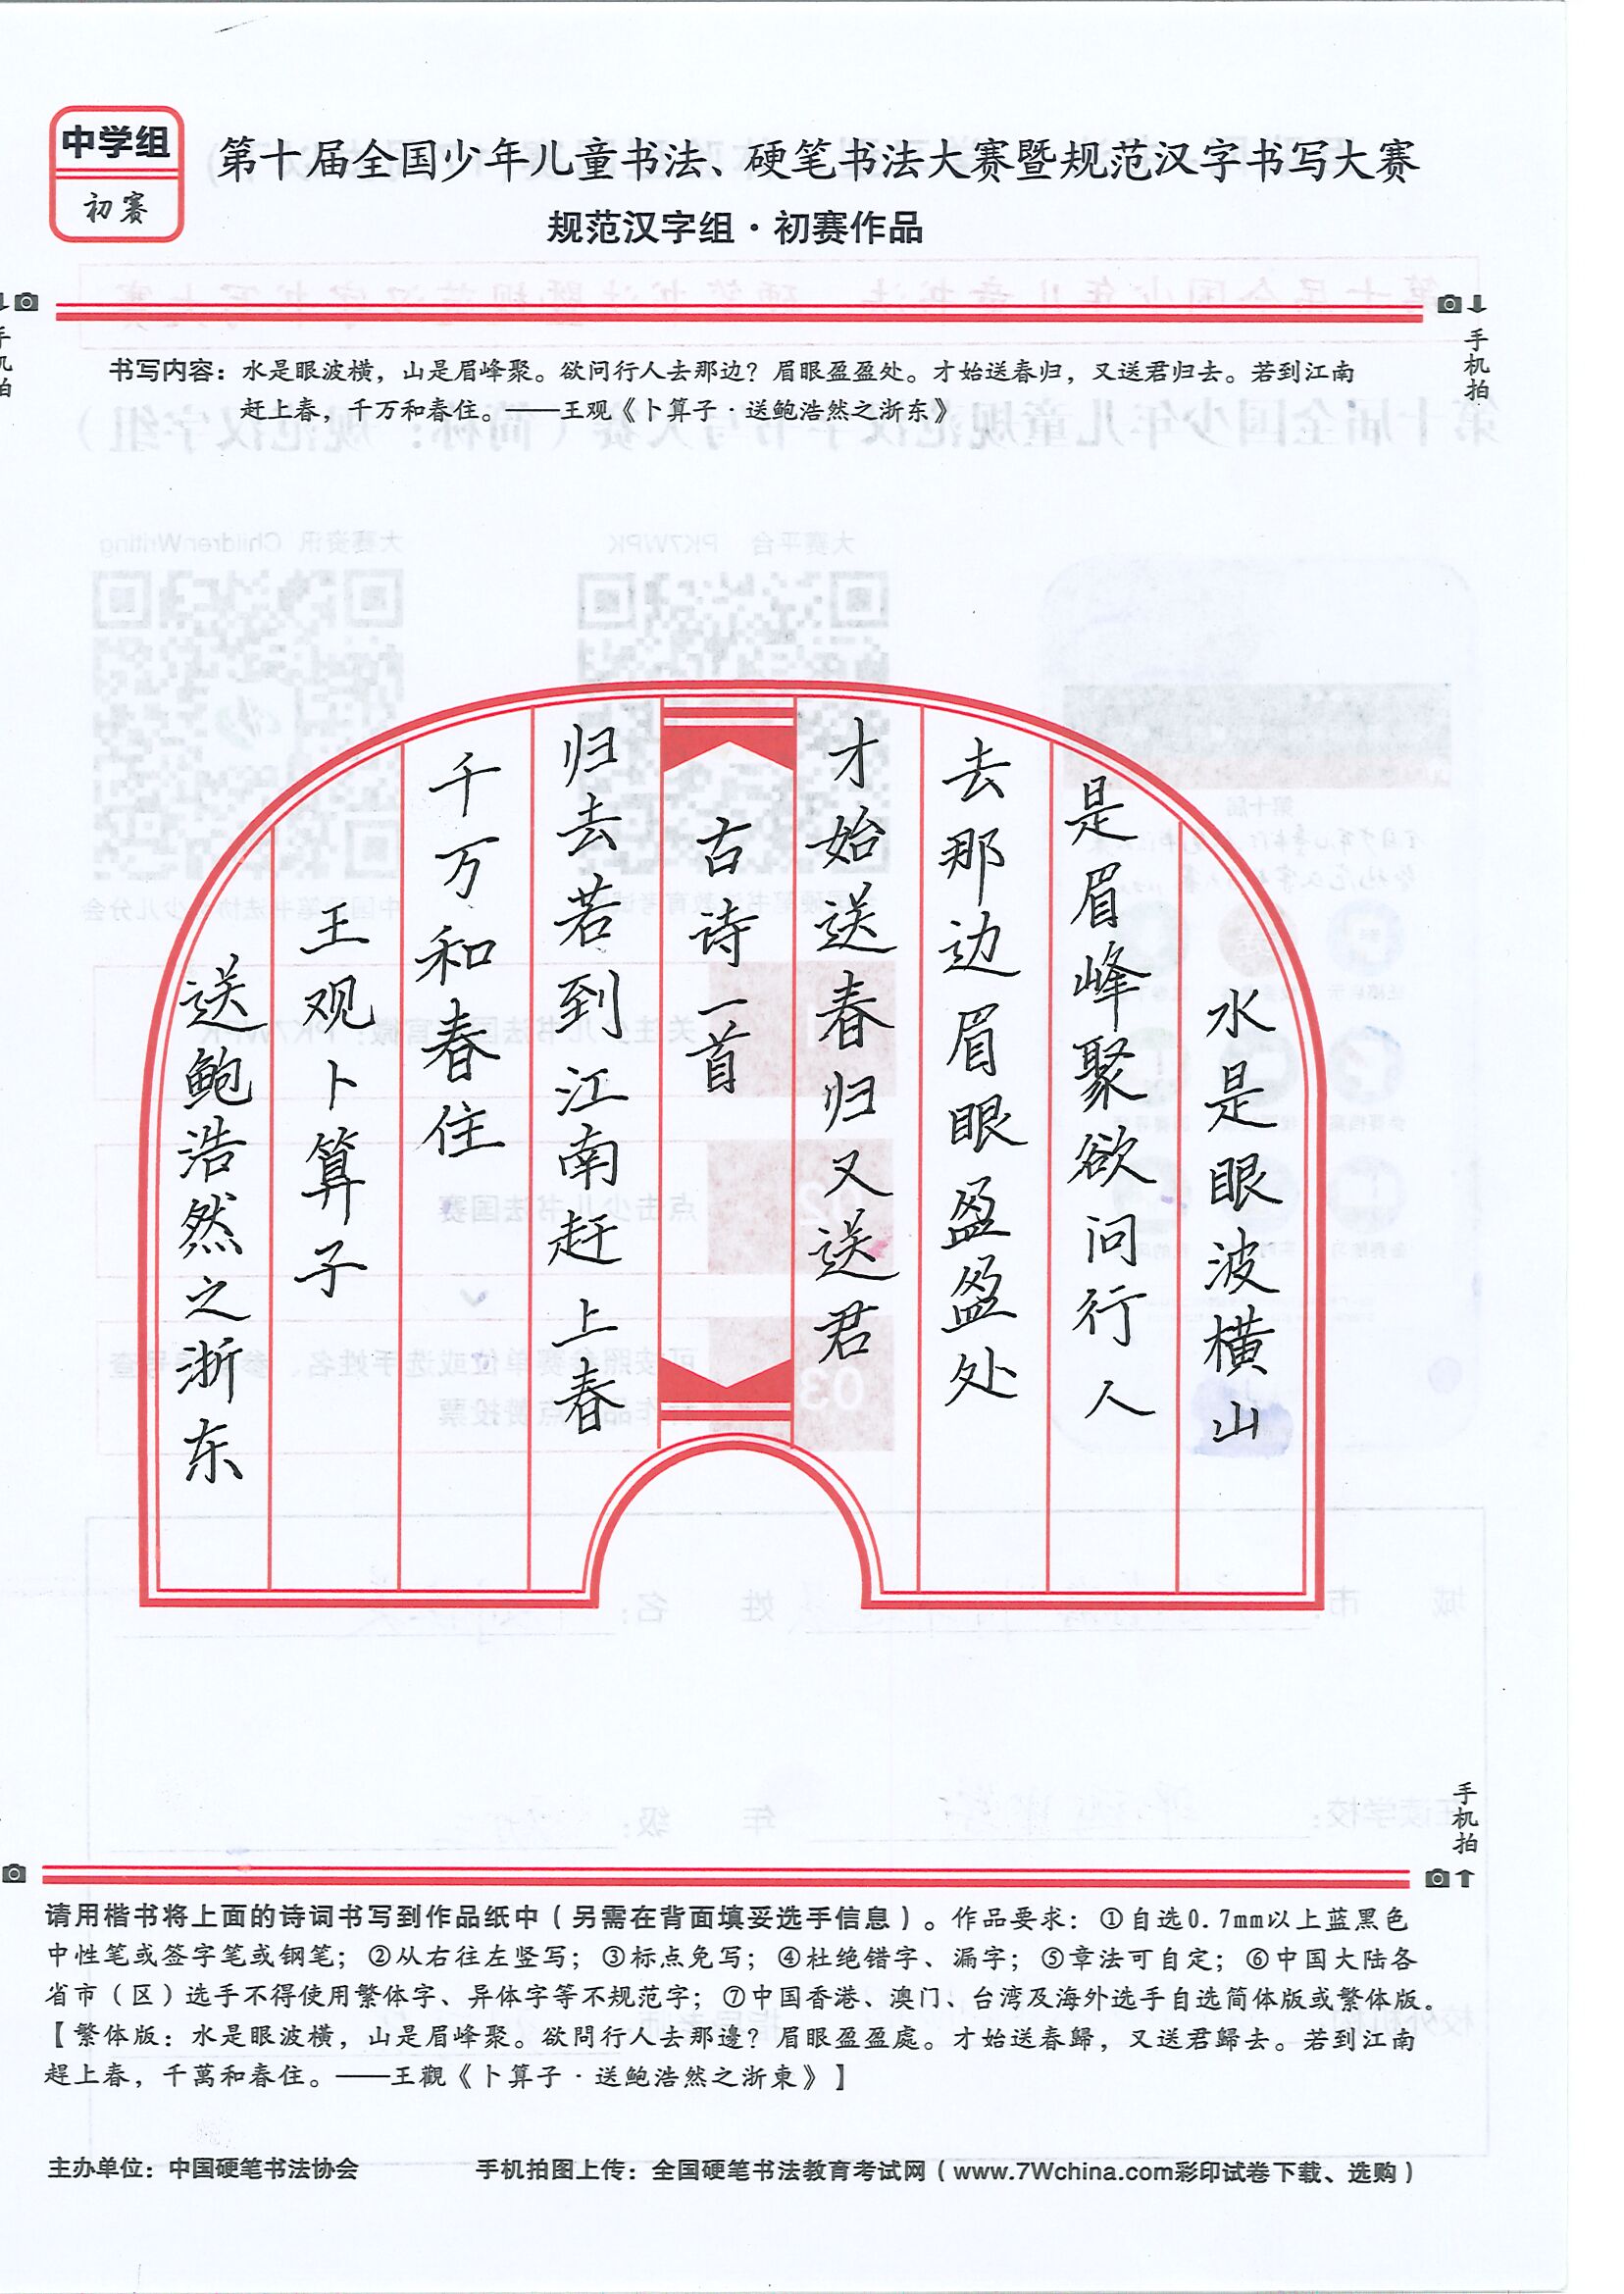 中学组
初赛
第十届全国少年儿童书法、硬笔书法大赛暨规范汉字书写大赛
规范汉字组·初赛作品
手机拍
手机拍
书写内容：水是眼波横，山是眉峰聚。欲问行人去那边？眉眼盈盈处。才始送春归，又送君归去。若到江南
赶上春，千万和春住。——王观《卜算子·送鲍浩然之浙东》
水是眼波横山
是眉峰聚欲问行人
去那边眉眼盈盈处
才始送春归又送君
古诗一首
归去若到江南赶上春
千万和春住
王观卜算子
送鲍浩然之浙东
手机拍
请用楷书将上面的诗词书写到作品纸中（另需在背面填妥选手信息）。作品要求：①自选0.7mm以上蓝黑色
中性笔或签字笔或钢笔；②从右往左竖写；③标点免写；④杜绝错字、漏字；⑤章法可自定；⑥中国大陆各
省市（区）选手不得使用繁体字、异体字等不规范字；⑦中国香港、澳门、台湾及海外选手自选简体版或繁体版。
【繁体版：水是眼波橫，山是眉峰聚。欲問行人去那邊？眉眼盈盈處。才始送春歸，又送君歸去。若到江南
趕上春，千萬和春住。——王觀《卜算子·送鮑浩然之浙東》】
主办单位：中国硬笔书法协会
手机拍图上传：全国硬笔书法教育考试网（www.7Wchina.com彩印试卷下载、选购）